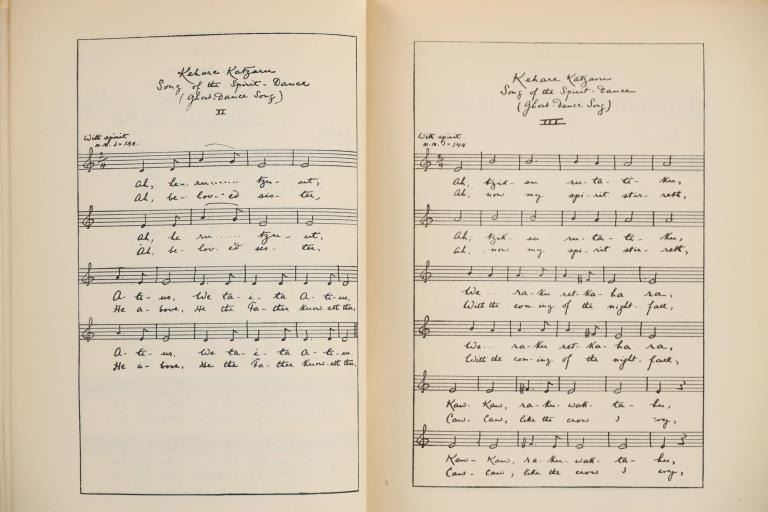 Kehare Katzaru
Song of the Spirit-Dance
(Ghost-Dance Song)
II
With spirit
M.M. = 144.
Ah, he- ru........ tzu- ut,
Ah, be- lov- ed sis- ter,
Ah, he ru...... tzu- ut,
Ah, be- lov- ed sis- ter.
A- ti- us, We ta- i- ta A- ti-us,
He a- bove, He the Fa- ther know-eth thee,
A- ti- us, We ta- i- ta A- ti-us.
He a- bove, He the Fa- ther know-eth thee,
Kehare Katzaru
Song of the Spirit-Dance
(Ghost-Dance Song)
III
With spirit
M.M. = 144
Ah, tzik- su ru- ta- ti- ku,
Ah, now my spi- rit stir- reth,
Ah, tzik- su ru- ta- ti- ku,
Ah, now my spi- rit stir- reth,
We.... ra- ku ret- ka- ha ra,
With the com- ing of the night- fall,
We.... ra- ku ret- ka- ha ra,
With the com- ing of the night- fall,
Kaw- Kaw, ra- ku- wak- ta- hu,
Caw- Caw, like the crow I cry,
Kaw- Kaw, ra- ku- wak- ta- hu,
Caw- Caw, like the crow I cry,